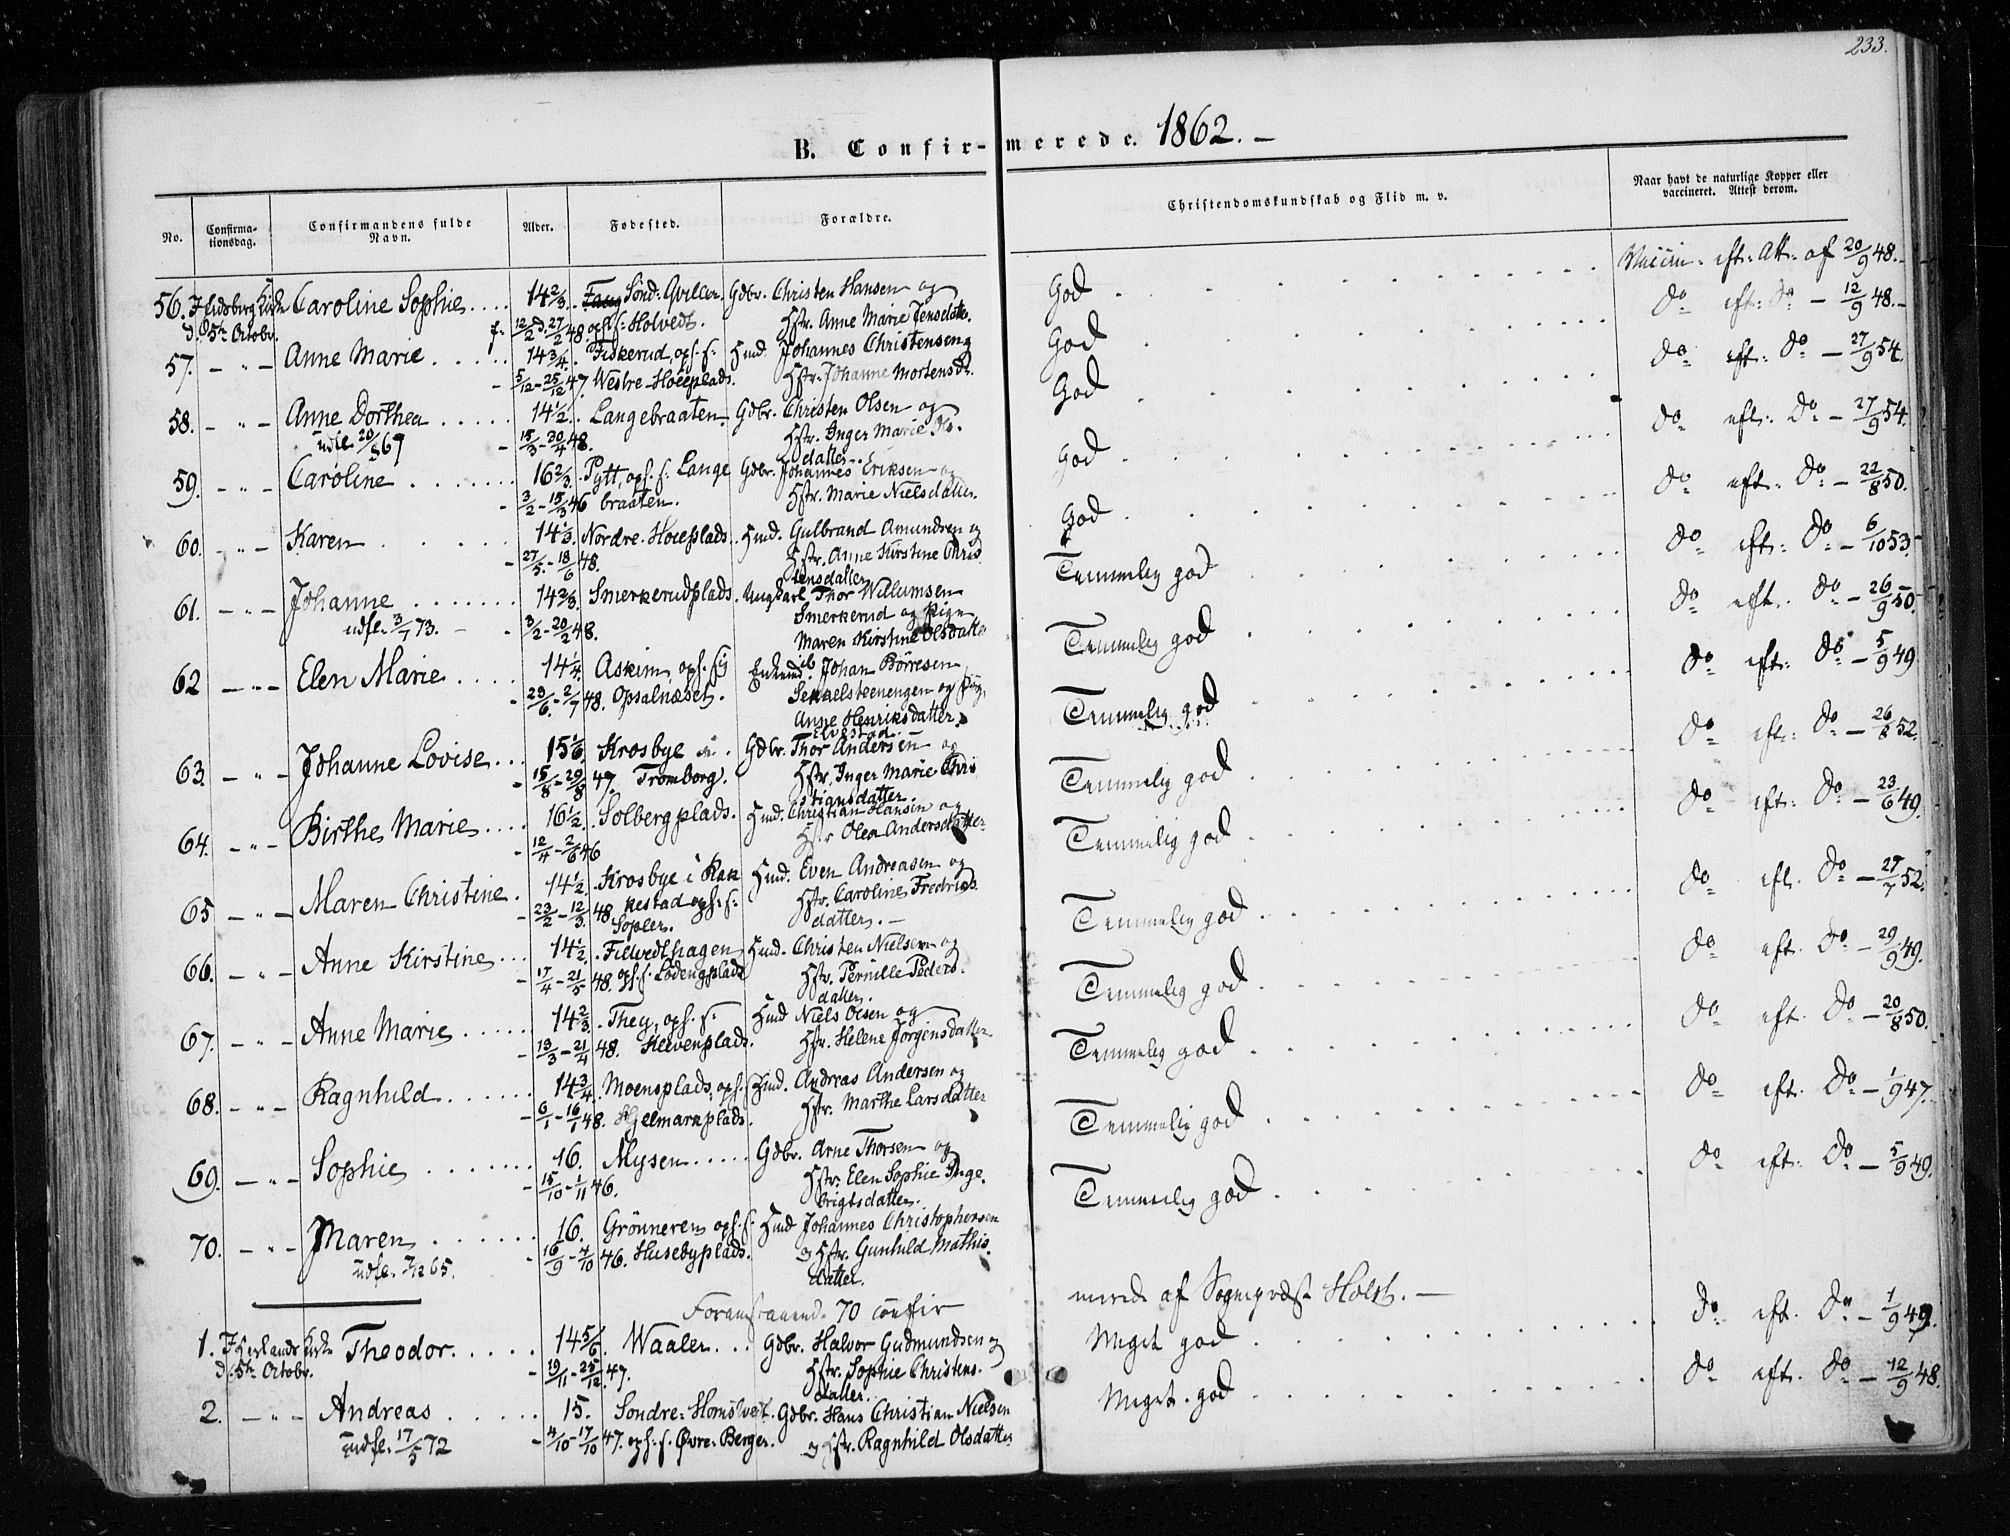 233.
B. Confir-merede. 1862. –
No. Confirma-tionsdag. Confirmandens fulde Navn. Alder. Fødested. Forældre. Christendomskundskab og Flid m. v. Naar havt de naturlige Kopper eller vaccineret. Attest derom.
56. I Eidsberg Kirke Caroline Sophie.... 14 2/3. Sönd: Gvilcer, Gdbr. Christen Hansen og God Vaccin. eft: Att: af 20/9 48. –
d. 5te Octobr. f. 12/2 d. 27/2 48 oph. f: Holvedt. Hstr. Anne Marie Jensdtr.
57. – " – Anne Marie..... 14 3/4. Fiskerud, oph. f: Hmd. Johannes Christensen og God do eft: do – 12/9 48. –
– 5/12 – 25/12 47. Westre-Hoieplads. Hstr. Johanne Mortensdr.
58. – " – Anne Dorthea..... 14 1/2. Langebraaten. Gdbr. Christen Olsen og God do eft: do – 27/9 54.
udfl. 20/3 67 – 15/3 – 30/4 48. Hstr. Inger Marie Ols.
datter.
59. – " – Caroline....... 16 2/3. Pytt, oph. f. Lange Gdbr. Johannes Eriksen og God do eft: do – 27/9 54.
– 3/2 – 15/3 46 braaten. Hstr. Marie Nielsdatter.
60. – " – Karen...... 14 1/3. Nordre-Hoieplads. Hmd. Gulbrand Amundsen og God do eft: do – 22/8 50.
– 27/5 – 18/6 48. Hstr. Anne Kirstine Chris
tensdatter
61. – " – Johanne....... 14 2/3. Smerkerudplads. Ungkarl Thor Willumsen Temmelig god do eft: do – 6/10 53.
udfl. 3/7 73. – – 3/2 – 20/2 48. Smerkerud og Pige
Maren Kirstine Olsdatter
62 – " – Elen Marie..... 14 1/4. Askim, oph. f: Enkemd. Johan Börresen Temmelig god do eft. do – 26/9 50.
– 23/6 – 2/7 48. Opsalnæset. og Pige
Anne Henriksdatter
63. – " – Johanne Lovise... 15 1/6. Krosbye i Gdbr. Thor Andersen og Temmelig god do eft: do – 5/9 49
– 15/8 – 29/8 47. Tromborg. Hstr. Inger Marie Chris
stiansdatter.
64. – " – Birthe Marie.... 16 1/2. Solbergplads. Hmd. Christian Hansen og Temmelig god do eft: do – 26/8 52.
– 12/4 – 2/6 46 Hstr Olea Andersdatter
65 – " – Maren Christine. 14 1/2. Krosbye i Rak Hmd. Even Andreasen og Temmelig god do eft: do – 23/6 49.
– 23/2 – 12/3 48. kestad oph. f: Hstr. Caroline Fredriks
Sopler. datter. –
66. – " – Anne Kirstine... 14 1/2. Filvedthagen Hmd. Christen Nielsen og Temmelig god do eft. do – 27/7 52.
– 17/4 – 21/5 48. oph. f: Lodengplads Hstr. Pernille Peders.
datter.
67. – " – Anne Marie...... 14 2/3. They, oph. f: Hmd Niels Olsen og Temmelig god do eft. do – 29/9 49.
– 13/3 – 21/4 48. Klevenplads. Hstr. Helene Jörgensdatter
68. – " – Ragnhild...... 14 3/4. Moensplads, oph. f: Hmd. Andreas Andersen og Temmelig god do eft. do – 20/8 50.
– 6/1 – 16/1 48. Hjelmarkplads. Hstr. Marthe Larsdatter
69. – " – Sophie....... 16. Mysen..... Gdbr. Arne Thorsen og Temmelig god do eft. do – 1/9 47.
– 15/10 – 1/11 46. Hstr. Elen Sophie Inge.
brigtsdatter.
70. – " – Maren....... 16. Grönneren oph. f: Hmd Johannes Christophersen Temmelig god do eft: do – 5/9 49.
udfl. 65. – 16/9 – 4/10 46. Husebyplads. og Hstr. Gunhild Mathis.
datter.
Foranstaaende 70 confir merede af Sognepræst Holst. –
1. I Herlands Kirke Theodor..... 14 5/6. Waaler... Gdbr. Halvor Gudmundsen og Meget god do eft. do – 1/9 49.
d. 5te Octobr. – 19/11 – 25/12 47. Hstr. Sophie Christens.
datter.
2. – " – Andreas...... 15. Sondre: Hornstvet. Gdbr. Hans Christian Nielsen Meget god do eft. do – 12/9 48.
udfl. 17/5 72 – 4/10 – 17/10 47. oph. f. Övre-Berger. og Hstr. Ragnhild Olsdatter